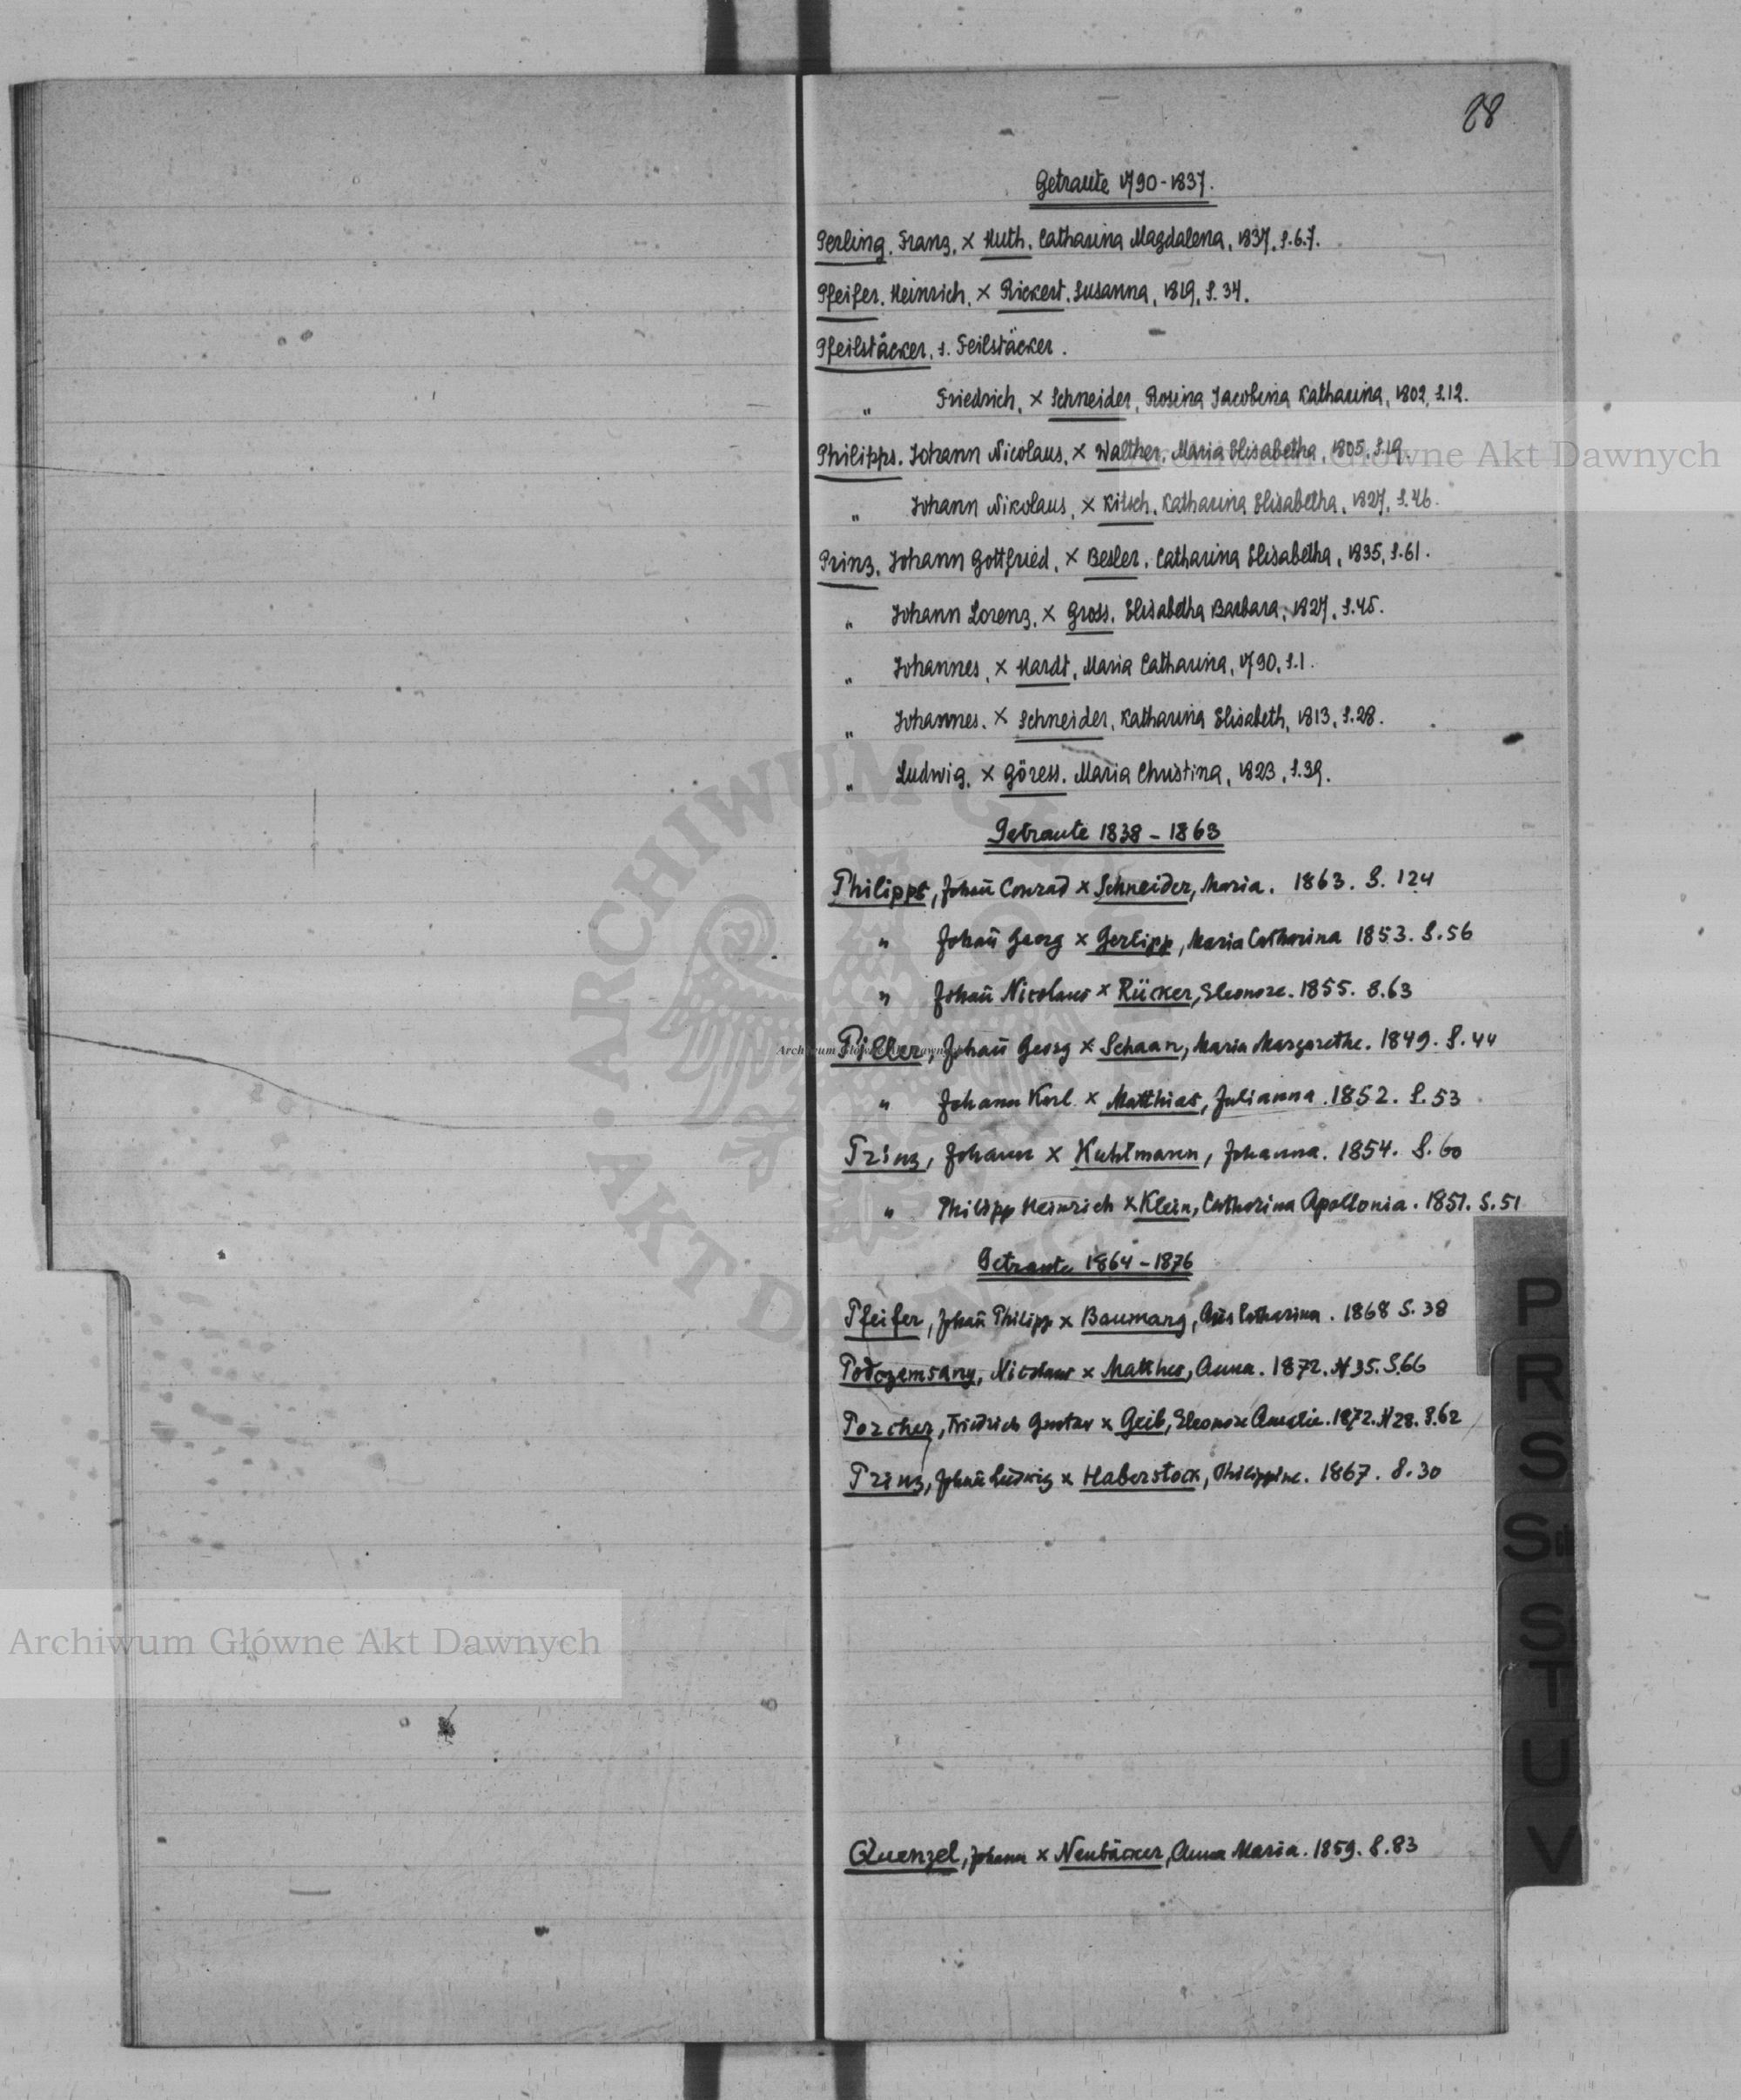 88
Getraute 1790-1837.
Perling, Franz, × Huth, Catharina Magdalena, 1837, S.67.
Pfeifer, Heinrich, × Rickert, Susanna, 1819, S.34.
Pfeilstäcker, s. Feilstäcker.
" Friedrich, × Schneider, Rosina Jacobina Katharina, 1802, S.12.
Philipps, Johann Nicolaus, × Walther, Maria Elisabetha, 1805, S.19.
" Johann Nikolaus, × Kitsch, Katharina Elisabetha, 1827, S.46.
Prinz, Johann Gottfried, × Besler, Catharina Elisabetha, 1835, S.61.
" Johann Lorenz, × Gross, Elisabetha Barbara, 1827, S.45.
" Johannes, × Hardt, Maria Catharina, 1790, S.1.
" Johannes, × Schneider, Katharina Elisabeth, 1813, S.28.
" Ludwig, × Göress, Maria Christina, 1823, S.39.
Getraute 1838-1863
Philipps, Johañ Conrad × Schneider, Maria. 1863. S. 124
" Johañ Georg × Gerlipp, Maria Catharina 1853. S.56
" Johañ Nicolaus × Rücker, Eleonore. 1855. S.63
Piller, Johañ Georg × Schaan, Maria Margarethe. 1849. S.44
" Johann Karl × Matthias, Julianna. 1852. S.53
Prinz, Johann × Kuhlmann, Johanna. 1854. S.60
" Philipp Heinrich × Klein, Catharina Apollonia. 1851. S.51
Getraute 1864-1876
Pfeifer, Johañ Philipp × Baumang, Catharina. 1868 S.38
Nicolaus × Matthes, Anna. 1872. N 35. S.66
Porcher, Friedrich Gustav × Geib, Eleonore Amalie. 1872. N 28. S.62
Prinz, Johañ Ludwig × Haberstock, Philippine. 1867. S.30
Quenzel, Johann × Neubäcker, Anna Maria. 1859. S.83
P
R
S
Sch
St
T
U
V
Archiwum Główne Akt Dawnych
Archiwum Główne Akt Dawnych
Archiwum Główne Akt Dawnych
ARCHIWUM GŁÓWNE AKT DAWNYCH